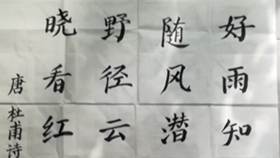 好雨知
随风潜
野径云
晓看红
唐杜甫诗